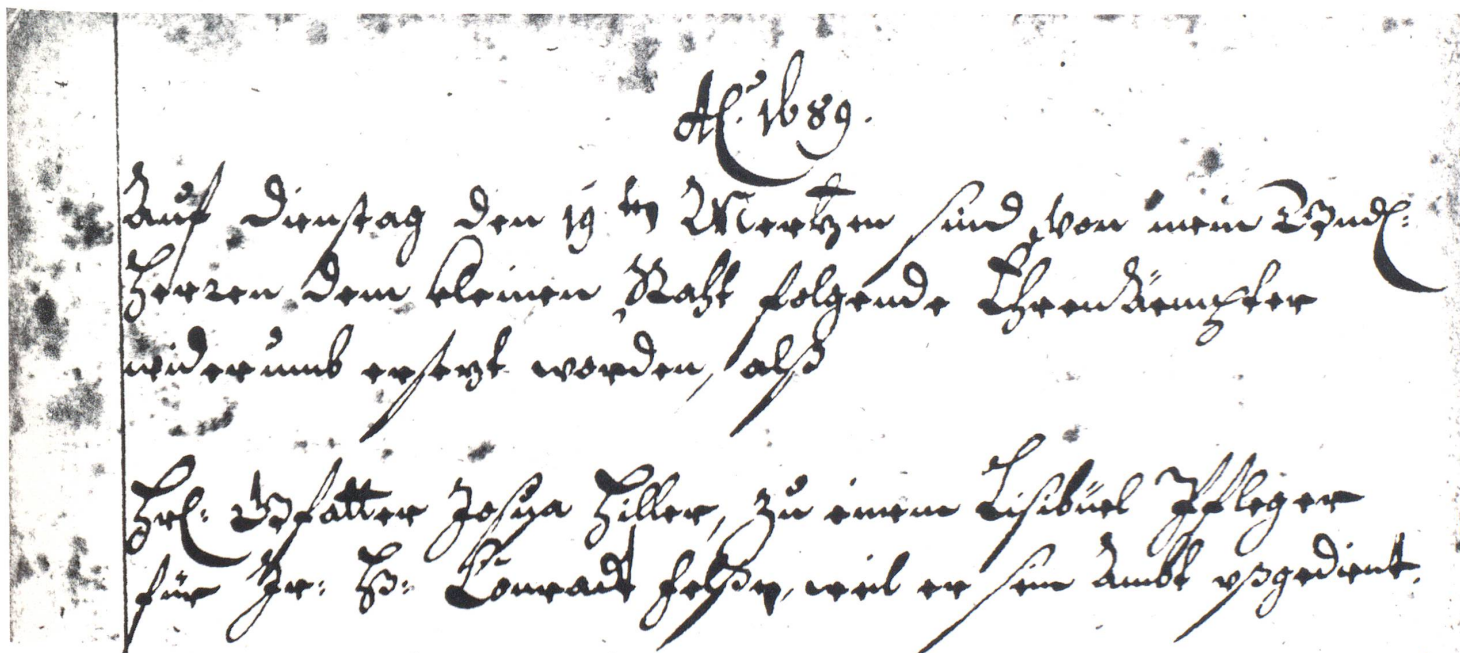 Aō. 1689.
Auf Dienstag den 19ten Mertzen sind von mein Gnd:
Herren dem kleinen Raht folgende Ehrenäempter
widerumb ersezt worden, alß
Hr: Gfatter Josua Hiller, zu einem Pfleger
für Jr: Hß: Conradt Felßen, weil er sein Ambt vßgedient.